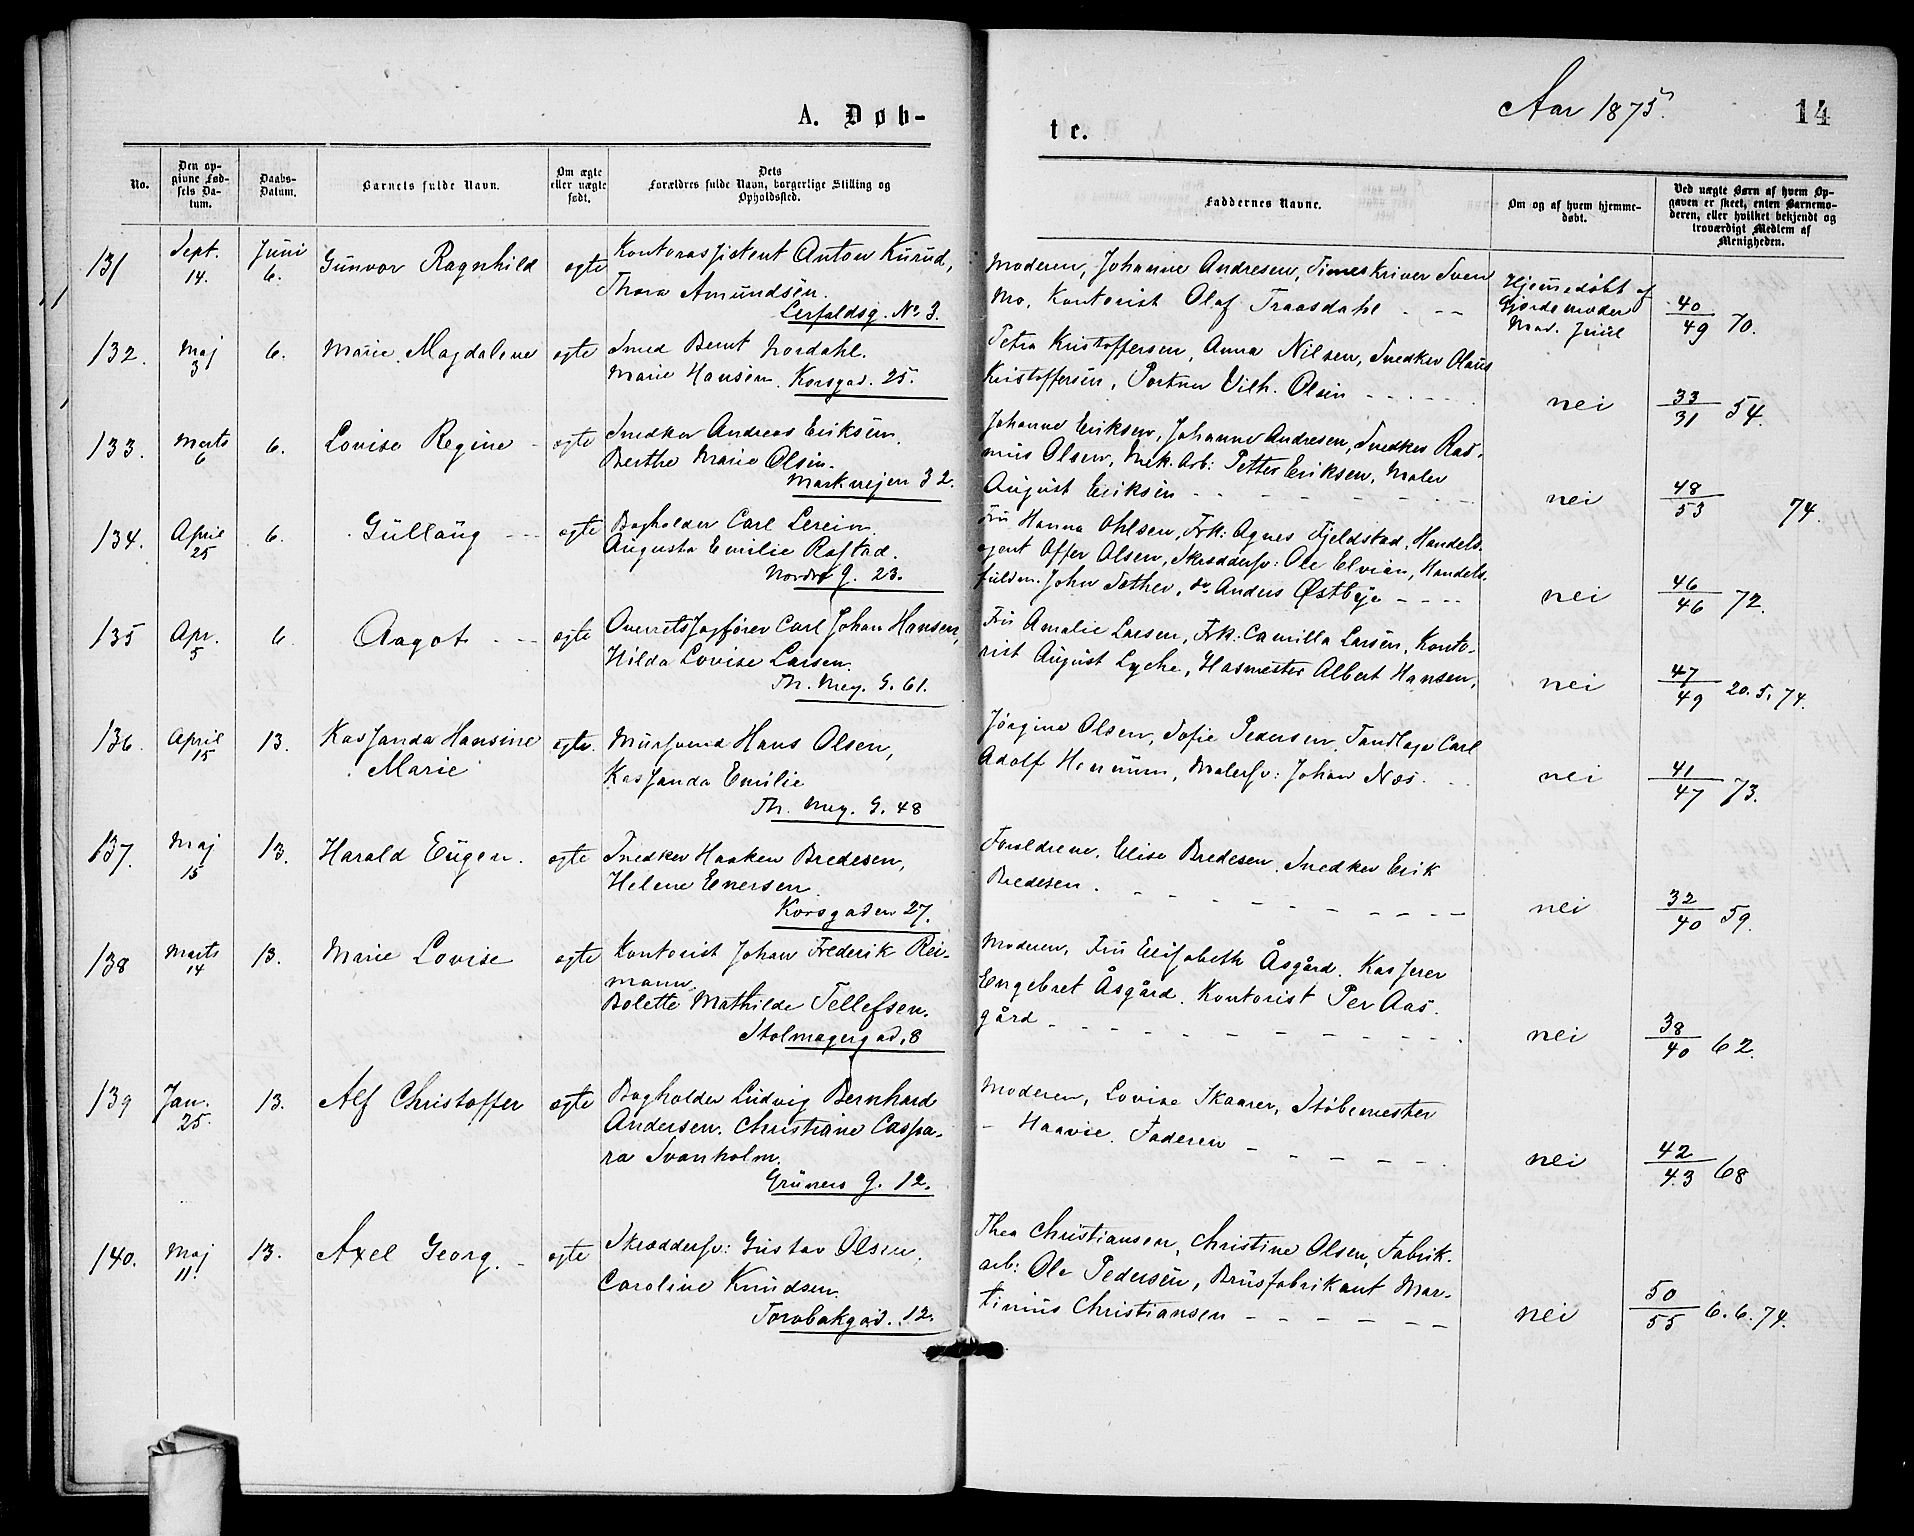 A. Døb-
te.
Aar 1875.
14
No.
Den op-
givne Fød-
sels Da-
tum.
Daabs-
Datum.
Barnets fulde Navn.
Om ægte
eller uægte
født.
Dets
Forældres fulde Navn, borgerlige Stilling og
Opholdssted.
Faddernes Navne.
Om og af hvem hjemme-
døbt.
Ved uægte Børn af hvem Op-
gaven er skeet, enten Barnemo-
deren, eller hvilket bekjendt og
troværdigt Medlem af
Menigheden.
131
Sept.
14.
Juni
6.
Gunvor Ragnhild
ægte
Kontorassistent Anton Kurud,
Thora Amundsen.
Lerfaldsg. No 3.
Moderen, Johanne Andresen, Timeskriver Sven
Mo, Kontorist Olaf Traasdahl - - -
Hjemmedøbt af
Gjordemoder
Mad. Juul
40
49 70.
132.
Maj
3
6.
Marie Magdalene
ægte
Smed Bernt Nordahl.
Marie Hansen. Korsgad. 25.
Petra Kristoffersen, Anna Nilsen, Snedker Olaus
Kristoffersen, Portner Vilh. Olsen - - - - -
nei
33
31 54.
133.
Marts
6
6.
Lovise Regine -
ægte
Snedker Andreas Eriksen.
Berthe Marie Olsen.
Markvejen 32.
Johanne Eriksen, Johanne Andresen, Snedker Ras-
mus Olsen, Mek. Arb: Petter Eriksen, Maler
August Eriksen - - - - - -
nei
48
53 74.
134.
April
25
6.
Gullaug - -
ægte
Bogholder Carl Lerein
Augusta Emilie Rafstad.
Nordre G. 23.
Fru Hanna Ohlsen, Frk: Agnes Fjeldstad, Handels-
agent Offer Olsen, Skræddersv: Ole Elvian, Handels-
fuldm. John Sæther, do Anders Østbye - - - -
nei
46
46 72.
135
Apr.
5
6.
Aagot - -
ægte
Overretssagfører Carl Johan Hansen,
Hilda Lovise Larsen.
Th. Mey. G. 61.
Fru Amalie Larsen, Frk: Camilla Larsen, Konto-
rist August Lyche, Havnemester Albert Hansen,
nei
47
49 20.5.74.
136.
April
15
13.
Kassanda Hansine
Marie
ægte.
Mursvend Hans Olsen,
Kassanda Emilie
Th. Mey. G. 48
Jørgine Olsen, Sofie Pedersen, Tandlæge Carl
Adolf Hennum, Malersv: Johan Næs.
nei
41
47 73.
137.
Maj
15
13.
Harald Eugen.
ægte
Snedker Haaken Bredesen,
Helene Enersen.
Korsgaden 27.
Forældrene, Elise Bredesen, Snedker Erik
Bredesen. - - - - - - - - -
nei
32
40 59.
138
Marts
14
13.
Marie Lovise
ægte
Kontorist Johan Frederik Rei-
mann
Bolette Mathilde Tellefsen.
Stolmagergad. 8
Moderen, Fru Elisabeth Åsgård, Kasserer
Engebret Åsgård. Kontorist Per Aas-
gård - - - - - - - - -
nei
38
40 62.
139
Jan.
25.
13.
Alf Christoffer
ægte
Bogholder Ludvig Bernhard
Andersen. Christiane Caspa-
ra Svanholm.
Grüners G. 12.
Moderen, Lovise Skaarer, Støbemester
- Haavie. Faderen - - - - -
nei
42
43 68
140.
Maj
11.
13.
Axel Georg. -
ægte
Skræddersv: Gustav Olsen.
Caroline Knudsen.
Torvbakgad. 12.
Thea Christiansen, Christine Olsen, Fabrik-
arb: Ole Pedersen, Brusfabrikant Mar-
tinius Christiansen - - - - - -
nei
50
55 6.6.74.